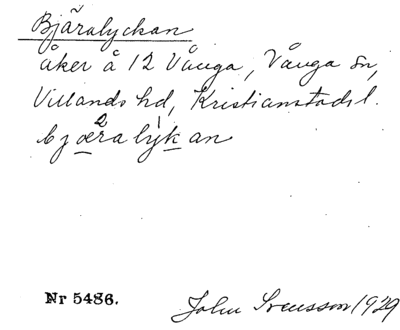 Bjäralyckan
åker å 12 Vånga, Vånga sn,
Villands hd, Kristianstads l.
bjæ2ralyk an
Nr 5486.
John Svensson 1929